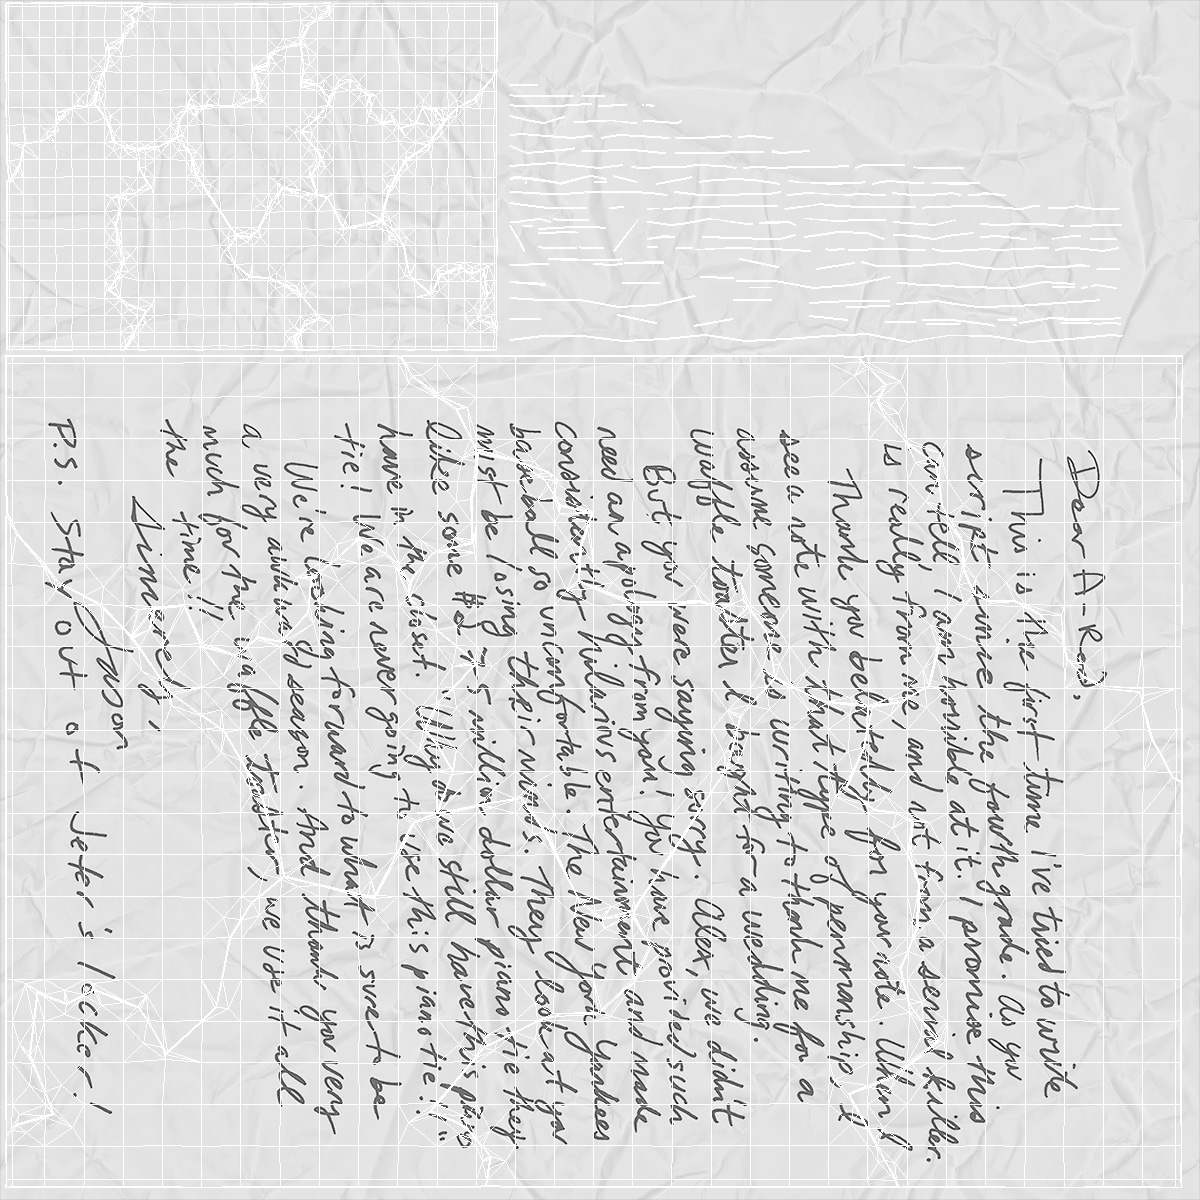 Dear A-Rod,
This is the first time I've tried to write
script since the fourth grade. As you
can tell, I am horrible at it. I promise this
is really from me, and not from a serial killer.
Thank you belatedly for your note. When I
see a note with that type of penmanship, I
assume someone is writing to thank me for a
waffle toaster I bought for a wedding.
But you were saying sorry. Alex, we didn't
need an apology from you! You have provided such
consistently hilarious entertainment and made
baseball so uncomfortable. The New York Yankees
must be losing their minds. They look at you
like some 275 million dollar piano tie they
have in the closet. "Why do we still have this piano
tie! We are never going to use this piano tie!!"
We're looking forward to what is sure to be
a very awkward season. And thank you very
much for the waffle toaster, we use it all
the time!!
Sincerely,
Jason
P.S. Stay out of Jeter's locker!